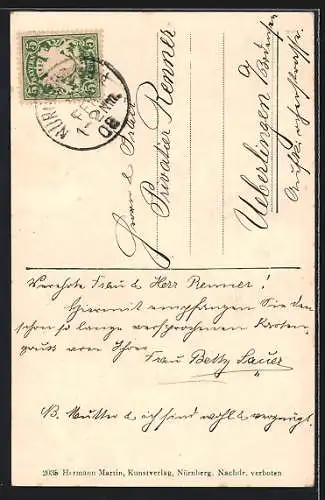 BAYERN
5 5
5 5
NÜRNB
1. FEB
Nm
08
Herrn & Frau
Privatier Renner
Ueberlingen a/ Bodensee
Aufkircherstrasse
Verehrte Frau & Herr Renner!
Hiermit empfangen Sie den
schon so lange versprochenen Karten-
gruss von Ihrer
Frau Betty Sauer
NB. Mutter & ich sind wohl & vergnügt.
2035 Hermann Martin, Kunstverlag, Nürnberg. Nachdr. verboten